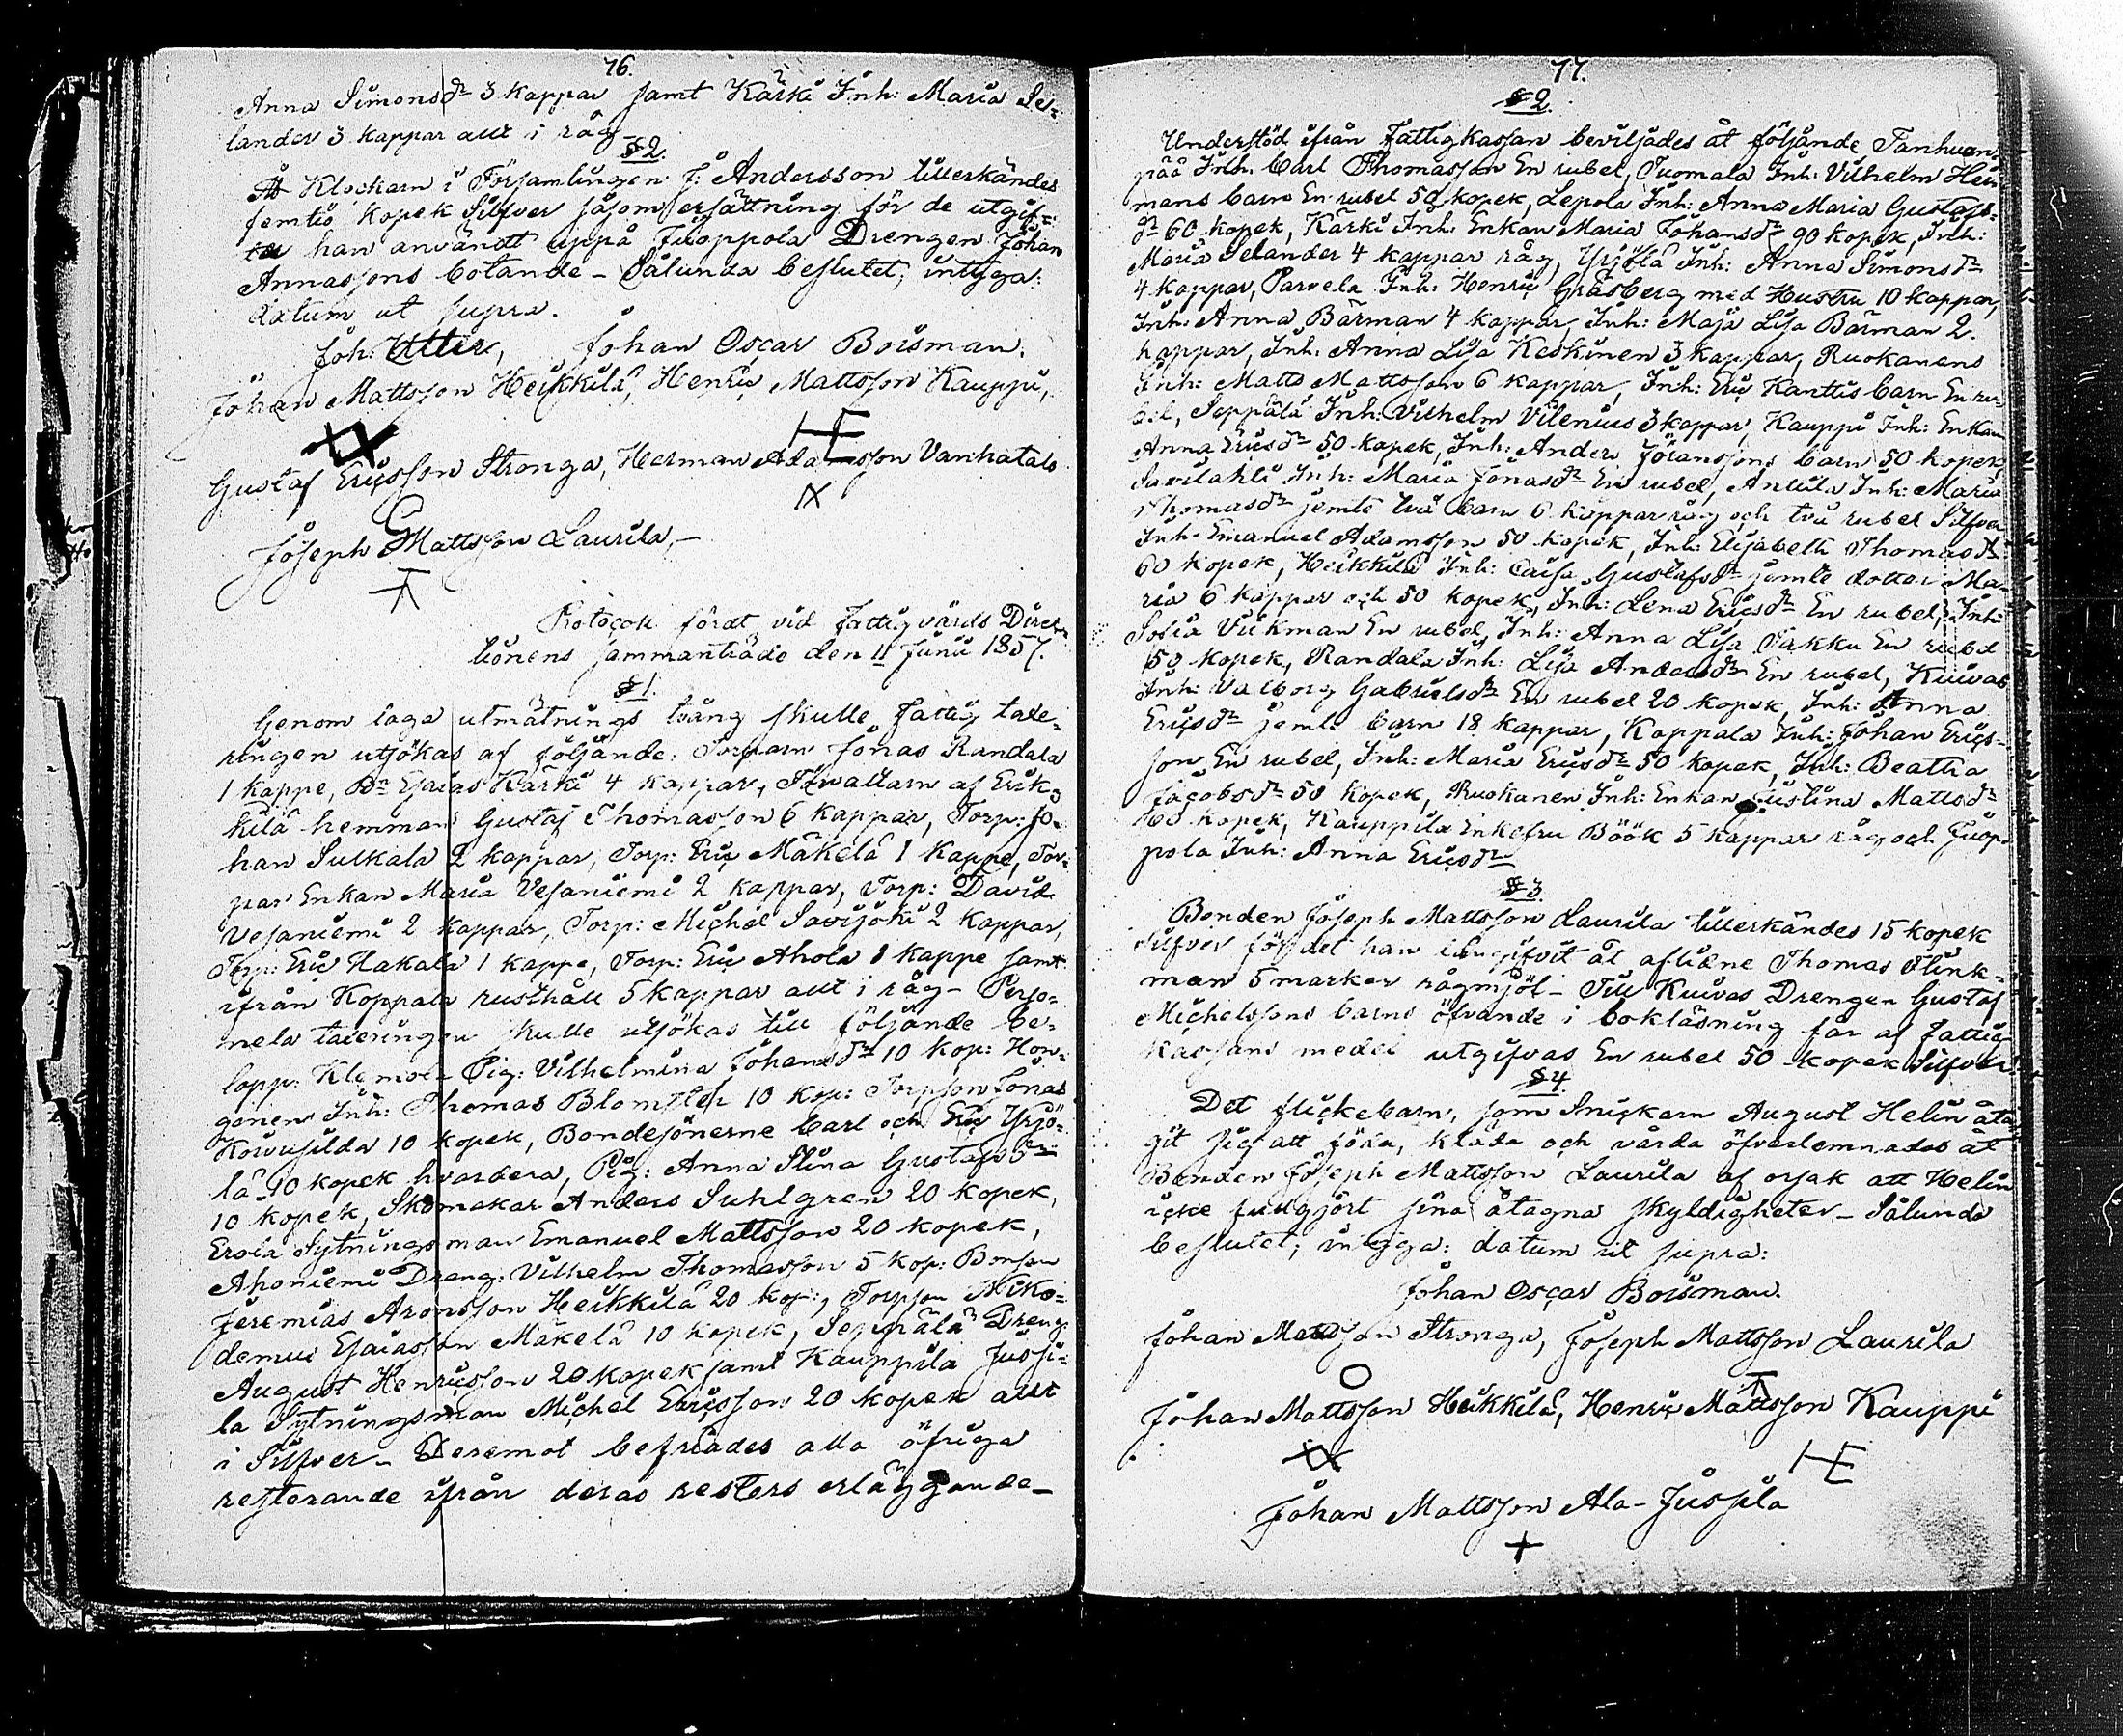 76.
Anna Simonsdr 3 kappar samt Kärki Inh: Maria Se-
lander 3 kappar allt i råg
§ 2.
Åt Klockarn i Församlingen J. Andersson tillerkändes
femtio kopek Silfver såsom ersättning för de utgif-
ter han användt uppå Juoppola Drengen Johan
Annassons botande – Sålunda beslutet; intyga:
datum ut supra.
Joh: Utter, Johan Oscar Boisman.
Johan Mattsson Heikkilä, Henric Mattsson Kauppi,
Gustaf Ericsson Stronga, Herman Adamsson Vanhatalo
Joseph Mattsson Laurila, –
Protocoll fördt vid Fattigvårds Direc-
tionens sammanträde den 11 Junii 1857.
§ 1.
Genom laga utmätnings tvång skulle Fattig taxe-
ringen utsökas af följande: Torparn Jonas Randala
1 kappe, Bn Esaias Kärki 4 kappar, Förvaltarn af Erik-
kilä hemman Gustaf Thomasson 6 kappar, Torp: Jo-
han Sulkala 2 kappar, Torp: Eric Mäkelä 1 kappe, Tor-
par Enkan Maria Vesaniemi 2 kappar, Torp: David
Vesaniemi 2 kappar, Torp: Michel Savijoki 2 kappar,
Torp: Eric Hakala 1 kappe, Torp: Eric Ahola 1 kappe samt
ifrån Koppala rusthåll 5 kappar allt i råg – Perso-
nela taxeringen skulle utsökas till följande be-
lopp: Klemola Pig: Vilhelmina Johansdr 10 kop: Hon-
gonen Inh: Thomas Blomster 10 kop: Torpson Jonas
Koivusilda 10 kopek, Bondesönerne Carl och Eric Yrjö-
lä 10 kopek hvardera, Pig: Anna Stina Gustafsdr
10 kopek, Skomakar Anders Suhlgren 20 kopek,
Erola Sytningsman Emanuel Mattsson 20 kopek,
Ahoniemi Dreng: Vilhelm Thomasson 5 kop: Bonson
Jeremias Aronsson Heikkilä 20 kop:, Torpson Niko-
demus Esaiasson Mäkelä 10 kopek, Seppälä Dreng
August Henricsson 20 kopek samt Kauppila Jussi-
la Sytningsman Michel Ericsson 20 kopek allt
i Silfver – Deremot befriades alla öfriga
resterande ifrån deras resters erläggande –
77.
§ 2.
Understöd ifrån Fattigkassan beviljades åt följande Tanhuan-
pää Inh. Carl Thomasson En rubel, Tuomala Inh: Vilhelm Hei-
mans barn En rubel 50 kopek, Lepola Inh: Anna Maria Gustafs-
dr 60 kopek, Kärki Inh: Enkan Maria Johansdr 90 kopek, Inh:
Maria Selander 4 kappar råg, Yrjölä Inh: Anna Simonsdr
4 kappar, Parvela Inh: Henric Gräsberg med Hustru 10 kappar,
Inh: Anna Bärman 4 kappar, Inh: Maja Lisa Bärman 2.
kappar, Inh: Anna Lisa Keskinen 3 kappar, Ruokanens
Inh: Matts Mattsson 6 kappar, Inh: Eric Kanttis barn En ru-
bel, Seppälä Inh: Vilhelm Vilenius 3 kappar, Kauppi Inh: Enkan
Anna Ericsdr 50 kopek, Inh: Anders Jöranssons barn 50 kopek,
Savilahti Inh: Maria Jonasdr En rubel, Anttila Inh: Maria
Thomasdr jemte två barn 6 kappar råg och två rubel Silfver
Inh: Emanuel Adamsson 50 kopek, Inh: Elisabeth Thomasdr
60 kopek, Heikkilä Inh: Caisa Gustafsdr jemte dotter Ma-
ria 6 kappar och 50 kopek, Inh: Lena Ericsdr En rubel, Inh:
Sofia Vickman En rubel, Inh: Anna Lisa Takku En rubel
50 kopek, Randala Inh: Lisa Andersdr En rubel, Kuivas
Inh: Valborg Gabrielsdr En rubel 20 kopek, Inh: Anna
Ericsdr jemte barn 18 kappar, Koppala Inh: Johan Erics-
son En rubel, Inh: Maria Ericsdr 50 kopek, Inh: Beatha
Jacobsdr 50 kopek, Ruokanen Inh: Enkan Justina Mattsdr
60 kopek, Kauppila Enkefru Böök 5 kappar råg och Juop-
pola Inh: Anna Ericsdr
§ 3.
Bonden Joseph Mattsson Laurila tillerkändes 15 kopek
Silfver för det han åt aflidne Thomas Flink-
man 5 marker rågmjöl – Till Kuivas Drengen Gustaf
Michelssons barns öfvande i bokläsning får af fattig
kassans medel utgifvas En rubel 50 kopek Silfver.
§ 4.
Det flickebarn, som Snickarn August Helin åta-
git sig att föda, kläda och vårda öfverlemnades åt
Bonden Joseph Mattsson Laurila af orsak att Helin
icke fullgjort sina åtagna skyldigheter – Sålunda
beslutet; intyga: datum ut supra:
Johan Oscar Boisman.
Johan Mattsson Stronga, Joseph Mattsson Laurila
Johan Mattsson Heikkilä, Henric Mattsson Kauppi
Johan Mattsson Ala-Jussila